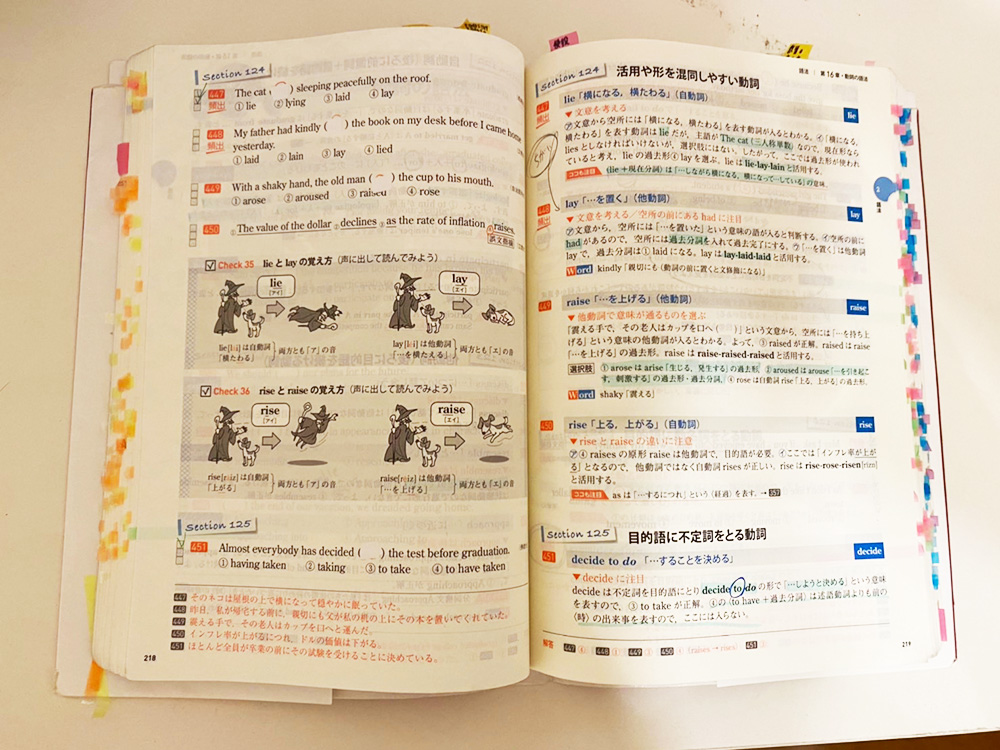 Section 124
447 The cat ( ) sleeping peacefully on the roof.
頻出 ① lie ② lying ③ laid ④ lay
448 My father had kindly ( ) the book on my desk before I came home
頻出 yesterday.
① laid ② lain ③ lay ④ lied
449 With a shaky hand, the old man ( ) the cup to his mouth.
① arose ② aroused ③ raised ④ rose
450 ①The value of the dollar ②declines ③as the rate of inflation ④raises.
Check 35 lie と lay の覚え方(声に出して読んでみよう)
lie
[アイ]
lay
[エイ]
lie[lái]は自動詞
「横たわる」
両方とも「ア」の音
lay[léi]は他動詞
「を横たえる」
両方とも「エ」の音
Check 36 rise と raise の覚え方(声に出して読んでみよう)
rise
[アイ]
raise
[エイ]
rise[ráiz]は自動詞
「上がる」
両方とも「ア」の音
raise[réiz]は他動詞
「…を上げる」
両方とも「エ」の音
Section 125
451 Almost everybody has decided ( ) the test before graduation.
① having taken ② taking ③ to take ④ to have taken
447 そのネコは屋根の上で横になって穏やかに眠っていた。
448 昨日,私が帰宅する前に,親切にも父が私の机の上にその本を置いてくれていた。
449 震える手で,その老人はカップを口へと運んだ。
450 インフレ率が上がるにつれ,ドルの価値は下がる。
451 ほとんど全員が卒業の前にその試験を受けることに決めている。
218
語法 第16章・動詞の語法
Section 124 活用や形を混同しやすい動詞
447 lie「横になる,横たわる」(自動詞)
頻出 ▼文意を考える
lie
㋐文意から空所には「横になる,横たわる」を表す動詞が入るとわかる。㋑「横になる,
横たわる」を表す動詞は lie だが,主語が The cat(三人称単数)なので,現在形なら
lies としなければいけないが,選択肢にはない。したがって,ここでは過去形が使われ
ていると考え,lie の過去形④ lay を選ぶ。lie は lie-lay-lain と活用する。
ココも注目 〈lie+現在分詞〉は「…しながら横になる,横になって…している」の意味。
448 lay「…を置く」(他動詞)
頻出 ▼文意を考える/空所の前にある had に注目
lay
㋐文意から,空所には「…を置いた」という意味の語が入ると判断する。㋑空所の前に
had があるので,空所には過去分詞を入れて過去完了にする。㋒「…を置く」は他動詞
lay で,過去分詞は① laid になる。lay は lay-laid-laid と活用する。
Word kindly「親切にも(動詞の前に置くと文修飾になる)」
449 raise「…を上げる」(他動詞)
▼他動詞で意味が通るものを選ぶ
raise
「震える手で,その老人はカップを口へ( )」という文意から,空所には「…を持ち上
げる」という意味の他動詞が入るとわかる。よって,③ raised が正解。raised は raise
「…を上げる」の過去形。raise は raise-raised-raised と活用する。
選択肢 ① arose は arise「生じる,発生する」の過去形,② aroused は arouse「…を引き起こ
す,刺激する」の過去形・過去分詞,④ rose は自動詞 rise「上る,上がる」の過去形。
Word shaky「震える」
450 rise「上る,上がる」(自動詞)
▼rise と raise の違いに注意
rise
㋐④ raises の原形 raise は他動詞で,目的語が必要。㋑ここでは「インフレ率が上が
る」となるので,他動詞ではなく自動詞 rises が正しい。rise は rise-rose-risen[rízn]
と活用する。
ココも注目 as は「…するにつれ」という〈経過〉を表す。→357
Section 125 目的語に不定詞をとる動詞
451 decide to do「…することを決める」
▼decide に注目
decide
decide は不定詞を目的語にとり decide to do の形で「…しようと決める」という意味
を表すので,③ to take が正解。④の〈to have+過去分詞〉は述語動詞よりも前の
〈時〉の出来事を表すので,ここには入らない。
解答 447 ④ 448 ① 449 ③ 450 ④(raises → rises) 451 ③
219
2
語法